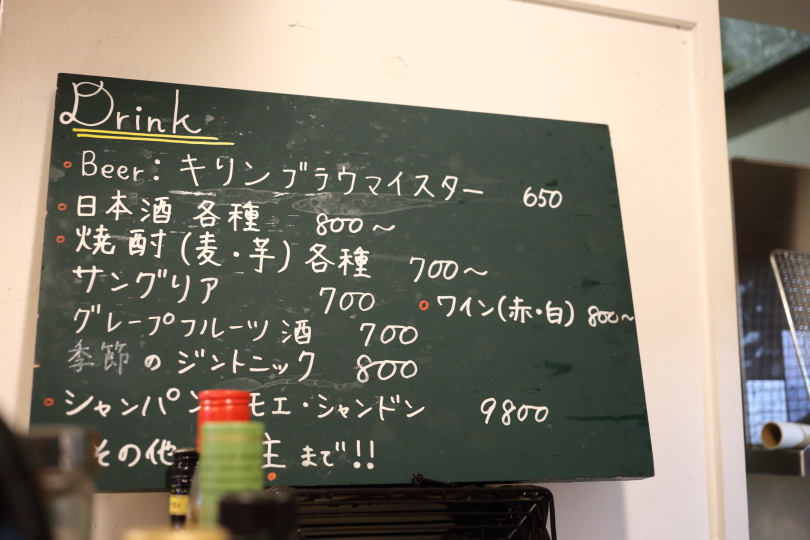 Drink
Beer: キリン ブラウマイスター 650
日本酒 各種 800～
焼酎(麦・芋)各種 700～
サングリア 700
ワイン(赤・白) 800～
グレープフルーツ酒 700
季節のジントニック 800
シャンパン モエ・シャンドン 9800
その他 主まで!!